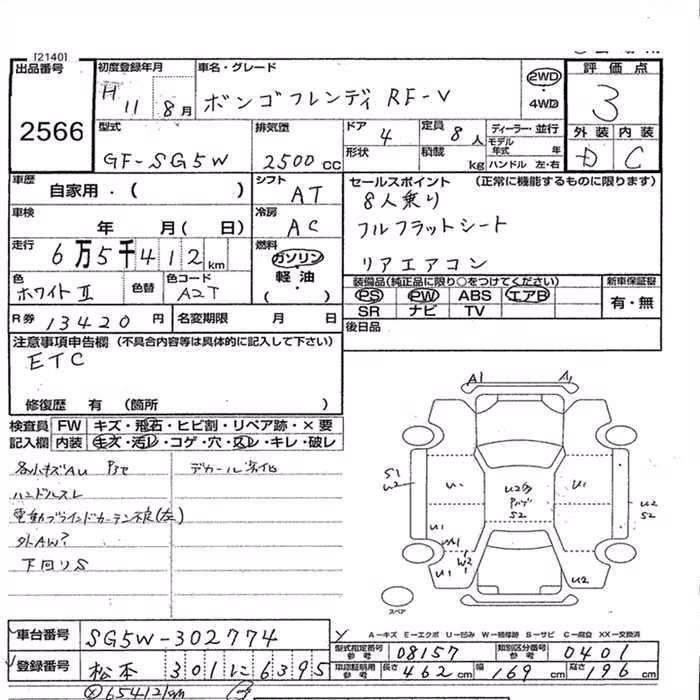 [2140]
出品番号 初度登録年月 車名・グレード 2WD 評価点
H 11 8月 ボンゴフレンディ RF-V ・4WD 3
2566 型式 排気量 ドア 4 定員 8人 ディーラー・並行 外装 内装
モデル年式 年
GF-SG5W 2500cc 形状 積載 kg ハンドル 左・右 D C
車歴 自家用・( ) シフト AT セールスポイント (正常に機能するものに限ります)
8人乗り
車検 年 月( 日) 冷房 AC フルフラットシート
走行 6万5千412km 燃料 ガソリン・軽油・( ) リアエアコン
色 ホワイトⅡ 色替 色コード A2T 装備品(純正品に限り○をつけてください) 新車保証書
PS PW ABS エアB 有・無
SR ナビ TV
R券 13420円 名変期限 月 日 後日品
注意事項申告欄 (不具合内容等は具体的に記入して下さい)
ETC
修復歴 有 (箇所 )
検査員 FW キズ・飛石・ヒビ割・リペア跡・×要
記入欄 内装 キズ・汚レ・コゲ・穴・スレ・キレ・破レ
A1
各小キズAU デカール劣化
ハンドルスレ
電動ブラインドカーテン不良(左)
外AW?
下回りS
S1
U2
U1
U2
S2
U1
U1
W2
U1
U2
U2
S2
スペア
車台番号 SG5W-302774
A-キズ E-エクボ U-凹み W-補修跡 S-サビ C-腐食 XX-交換済
型式指定番号 参考 08157 類別区分番号 参考 0401
登録番号 松本 301 に 6395 車庫証明用参考 長さ 462cm 幅 169cm 高さ 196cm
65412km